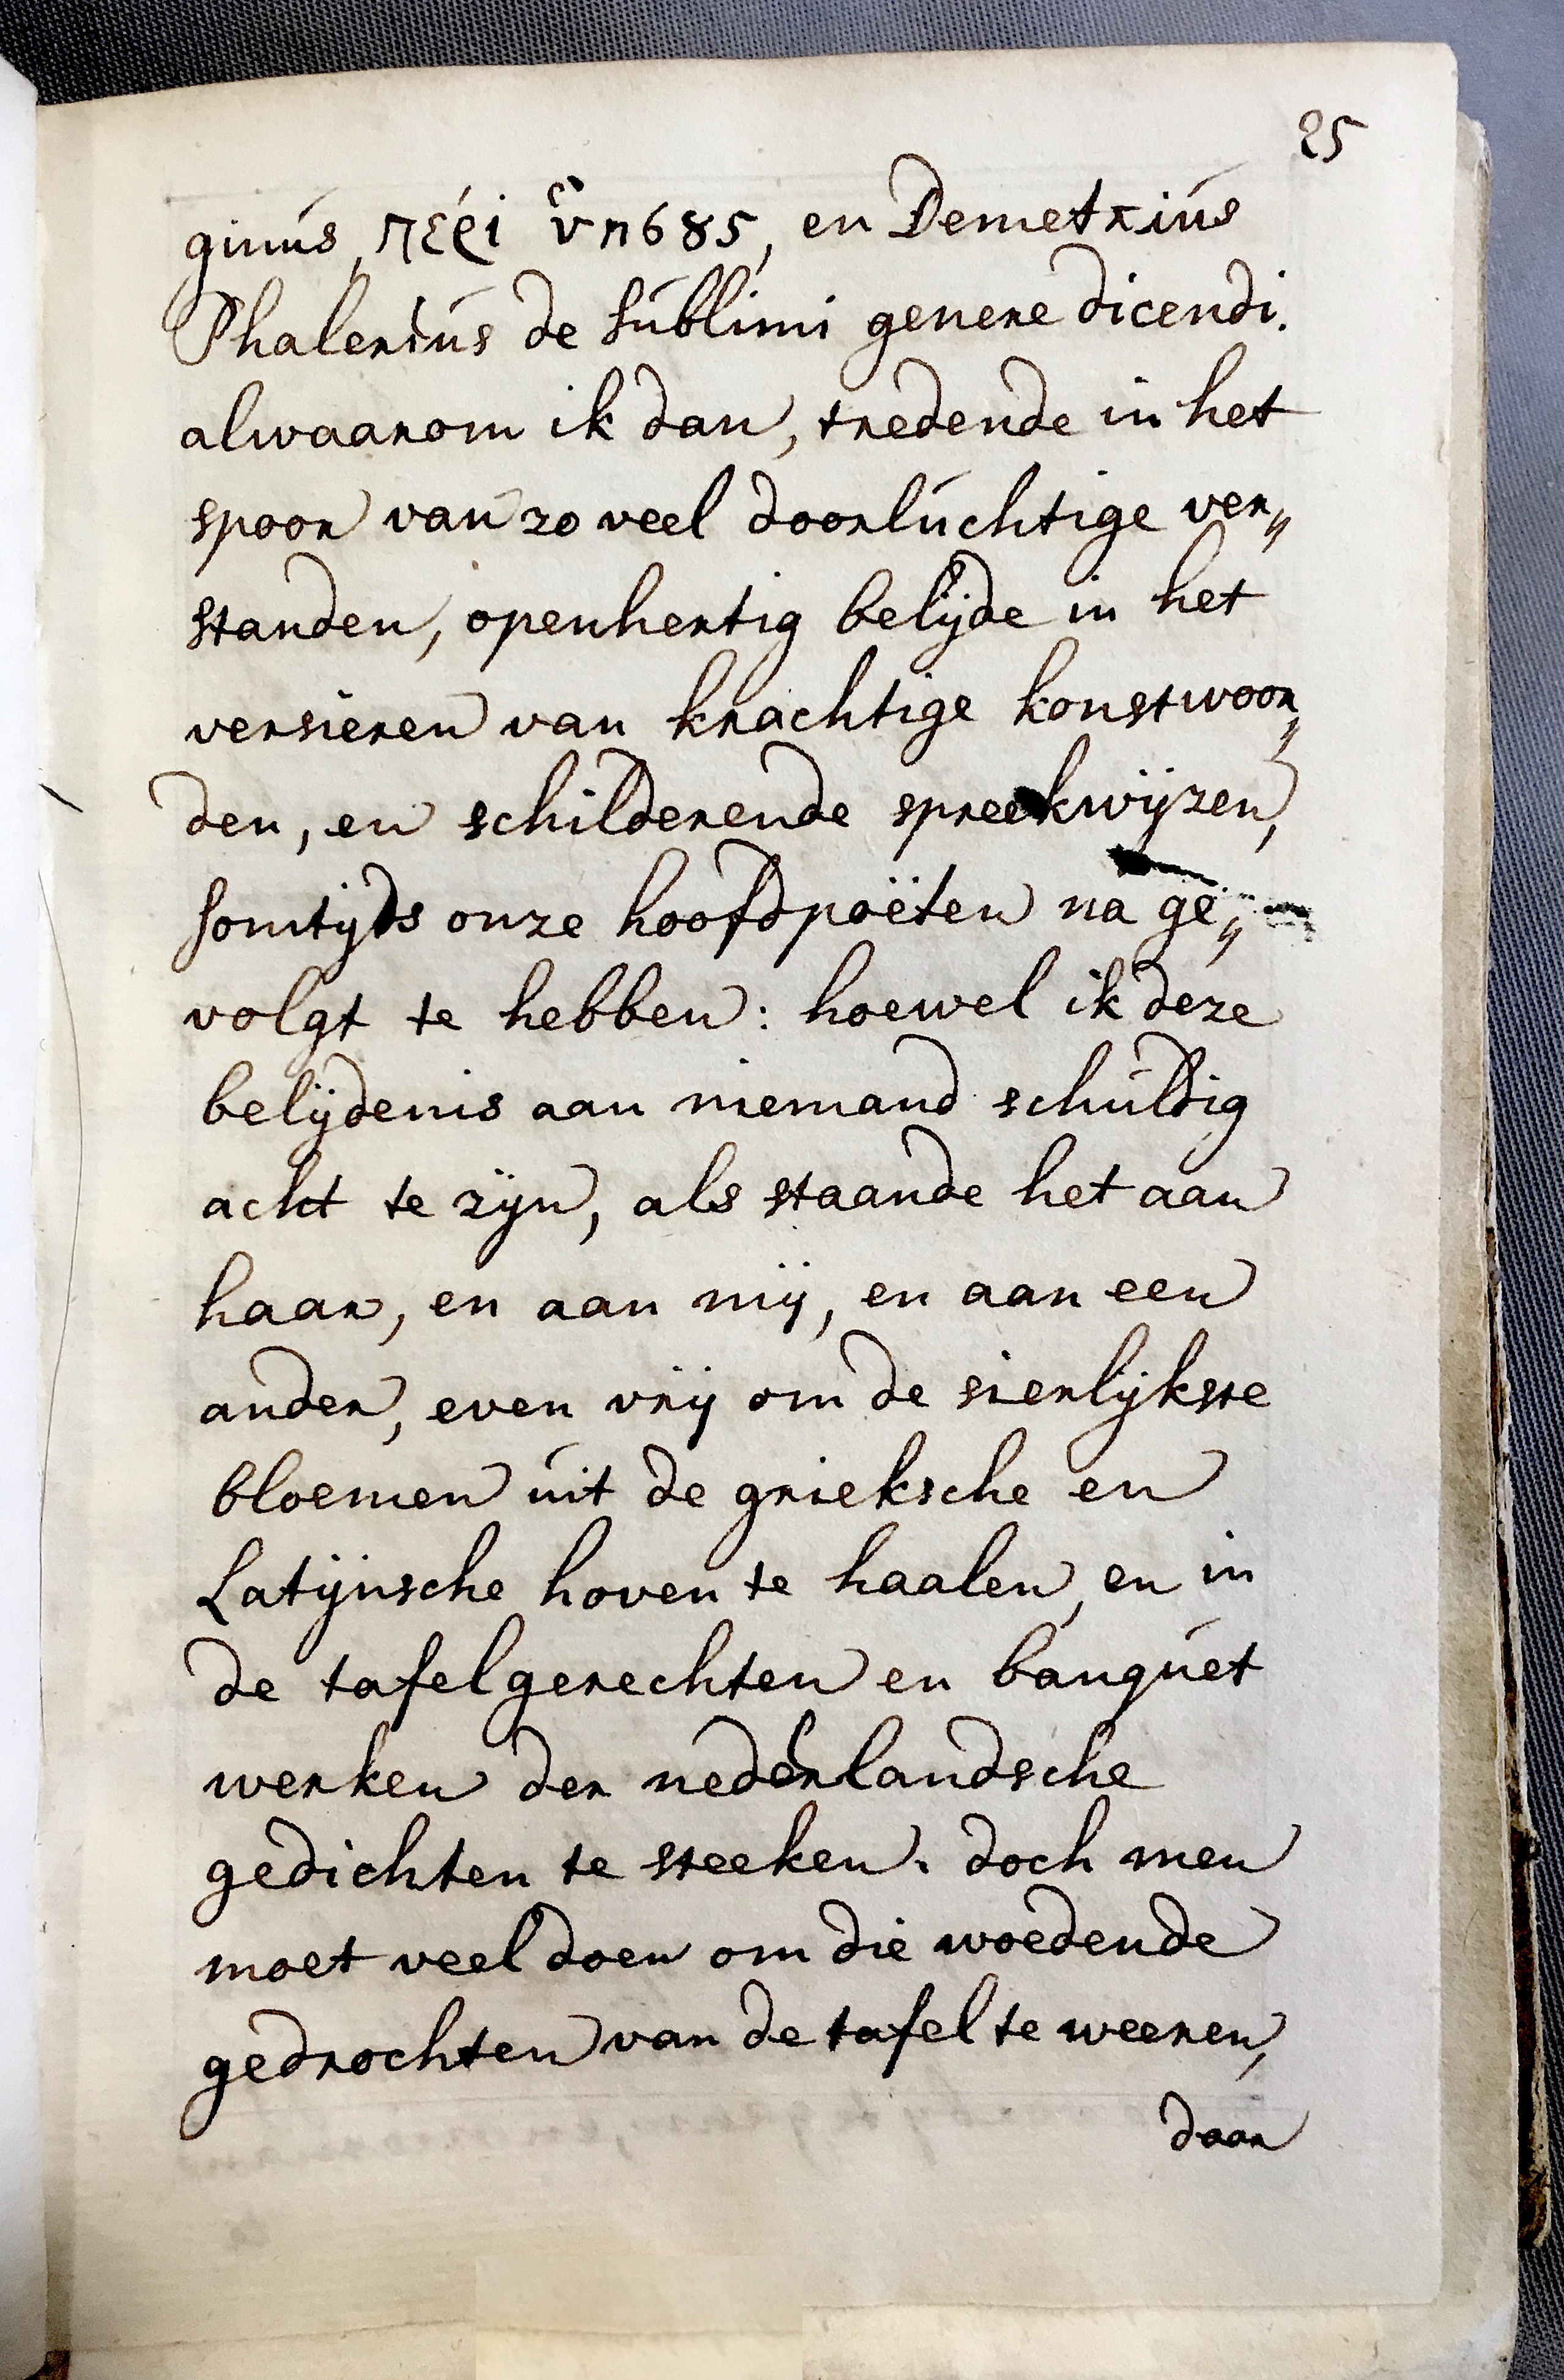 25
ginus, περὶ ὕπ685, en Demetrius
Phalerius de sublimi genere dicendi.
alwaarom ik dan, tredende in het
spoor van zo veel doorluchtige ver„
standen, openhertig belijde in het
versieren van krachtige konstwoor„
den, en schilderende spreekwijzen,
somtijds onze hoofdpoëten na ge„
volgt te hebben: hoewel ik deze
belijdenis aan niemand schuldig
acht te zijn, als staande het aan
haar, en aan mij, en aan een
ander, even vrij om de sierlijkste
bloemen uit de grieksche en
Latijnsche hoven te haalen, en in
de tafelgerechten en banquet
werken der nederlandsche
gedichten te steeken. doch men
moet veel doen om die woedende
gedrochten van de tafel te weeren,
daar